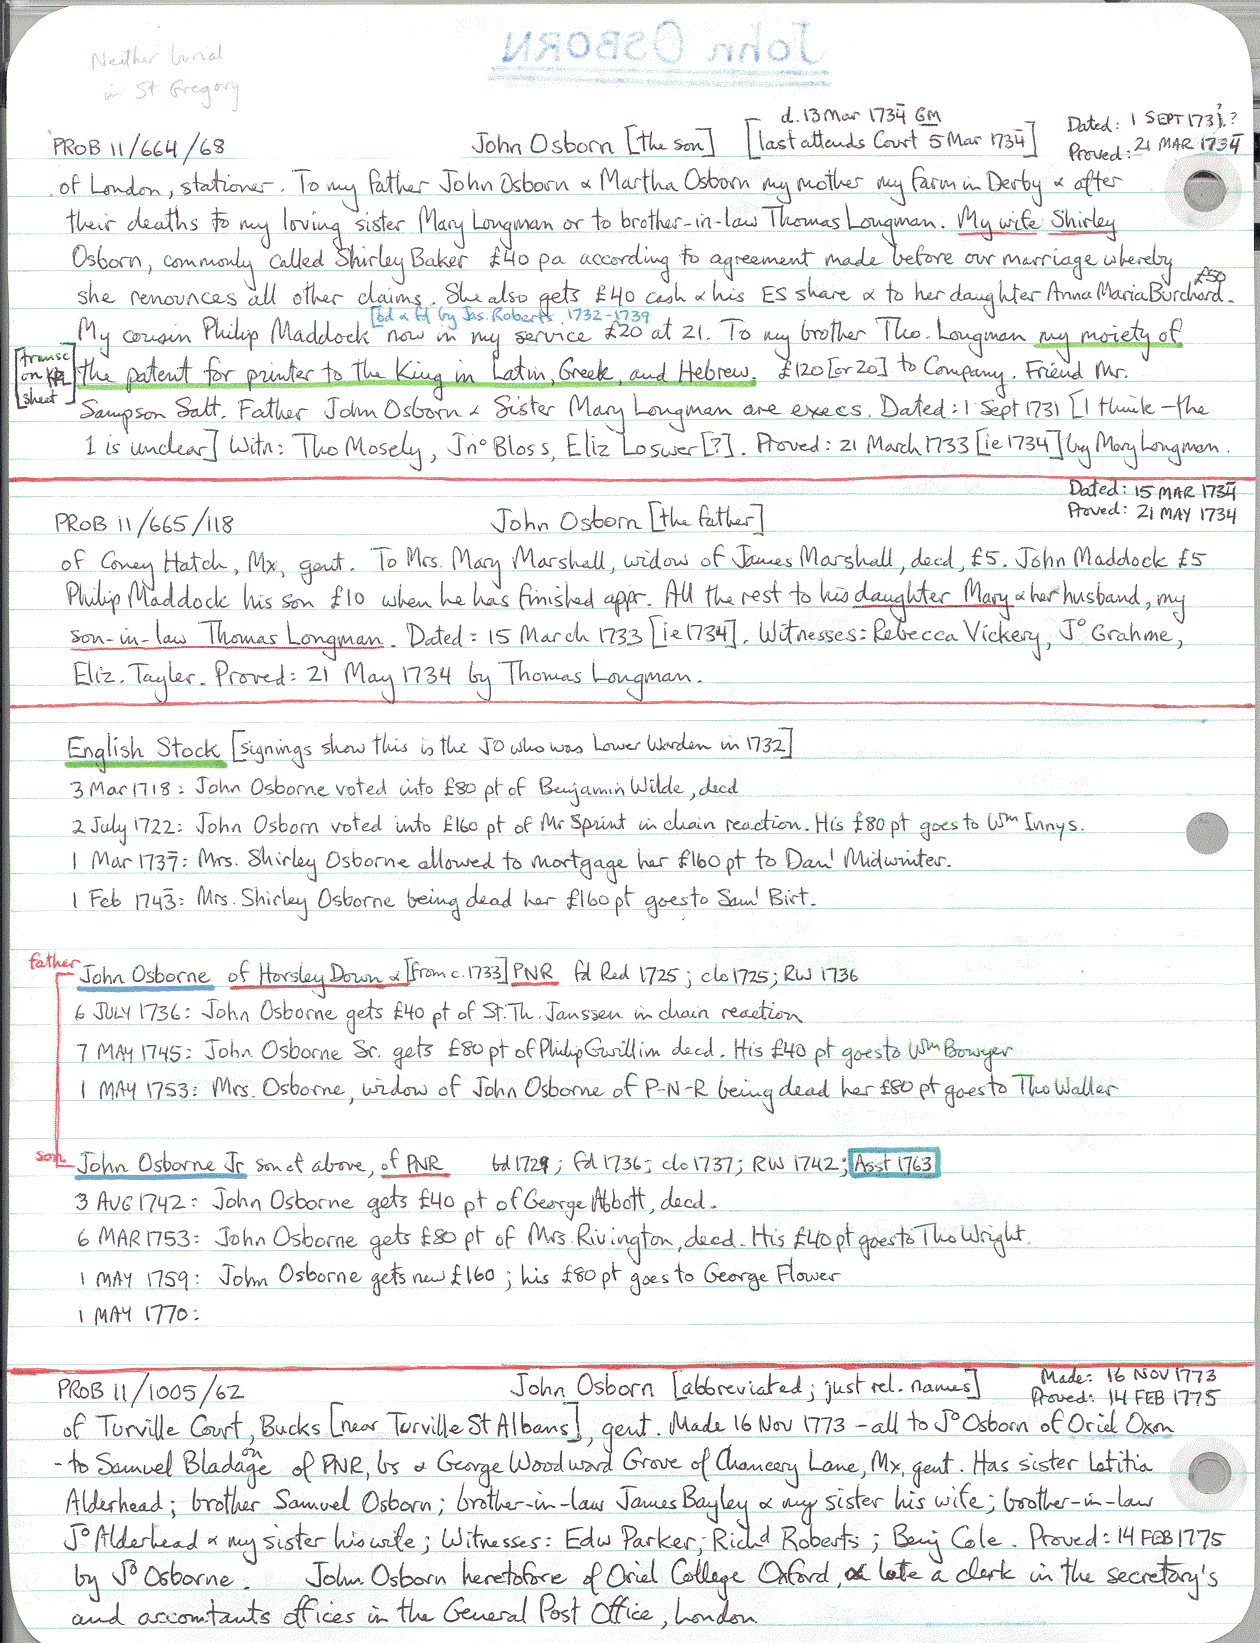 John OSBORN
Neither burial
in St Gregory
d. 13 Mar 1734 GM
Dated: 1 SEPT 1731?
PROB 11/664/68 John Osborn [the son] [last attends Court 5 Mar 1734] Proved: 21 MAR 1734
of London, stationer. To my father John Osborn & Martha Osborn my mother my farm in Derby & after
their deaths to my loving sister Mary Longman or to brother-in-law Thomas Longman. My wife Shirley
Osborn, commonly called Shirley Baker £40 pa according to agreement made before our marriage whereby
£50
she renounces all other claims. She also gets £40 cash & his ES share & to her daughter Anna Maria Burchard.
[bd & fd by Jas. Roberts 1732-1739
My cousin Philip Maddock now in my service £20 at 21. To my brother Tho. Longman my moiety of
[transc on KP sheet]
the patent for printer to the King in Latin, Greek, and Hebrew. £120 [or 20] to Company. Friend Mr.
Sampson Salt. Father John Osborn & Sister Mary Longman are execs. Dated: 1 Sept 1731 [I think - the
1 is unclear] Witn: Tho Mosely, Jno Bloss, Eliz Loswer[?]. Proved: 21 March 1733 [ie 1734] by Mary Longman.
Dated: 15 MAR 1734
PROB 11/665/118 John Osborn [the father] Proved: 21 MAY 1734
of Coney Hatch, Mx, gent. To Mrs. Mary Marshall, widow of James Marshall, decd, £5. John Maddock £5
Philip Maddock his son £10 when he has finished appr. All the rest to his daughter Mary & her husband, my
son-in-law Thomas Longman. Dated: 15 March 1733 [ie 1734]. Witnesses: Rebecca Vickery, Jo Grahme,
Eliz. Tayler. Proved: 21 May 1734 by Thomas Longman.
English Stock [signings show this is the JO who was Lower Warden in 1732]
3 Mar 1718: John Osborne voted into £80 pt of Benjamin Wilde, decd
2 July 1722: John Osborn voted into £160 pt of Mr Sprint in chain reaction. His £80 pt goes to Wm Innys.
1 Mar 1737: Mrs. Shirley Osborne allowed to mortgage her £160 pt to Danl Midwinter.
1 Feb 1743: Mrs. Shirley Osborne being dead her £160 pt goes to Saml Birt.
father John Osborne of Horsley Down & [from c. 1733] PNR fd Red 1725; clo 1725; RW 1736
6 JULY 1736: John Osborne gets £40 pt of St. Th. Janssen in chain reaction
7 MAY 1745: John Osborne Sr. gets £80 pt of Philip Gwillim decd. His £40 pt goes to Wm Bowyer
1 MAY 1753: Mrs. Osborne, widow of John Osborne of P-N-R being dead her £80 pt goes to Tho Waller
son John Osborne Jr son of above, of PNR bd 1729; fd 1736; clo 1737; RW 1742; Asst 1763
3 AUG 1742: John Osborne gets £40 pt of George Abbott, decd.
6 MAR 1753: John Osborne gets £80 pt of Mrs. Rivington, decd. His £40 pt goes to Tho Wright.
1 MAY 1759: John Osborne gets new £160; his £80 pt goes to George Flower
1 MAY 1770:
Made: 16 NOV 1773
PROB 11/1005/62 John Osborn [abbreviated; just rel. names] Proved: 14 FEB 1775
of Turville Court, Bucks [near Turville St Albans], gent. Made 16 Nov 1773 - all to Jo Osborn of Oriel Oxon
on
- to Samuel Bladage of PNR, bs & George Woodward Grove of Chancery Lane, Mx, gent. Has sister Letitia
Alderhead; brother Samuel Osborn; brother-in-law James Bayley & my sister his wife; brother-in-law
Jo Alderhead & my sister his wife; Witnesses: Edw Parker; Richd Roberts; Benj Cole. Proved: 14 FEB 1775
by Jo Osborne. John Osborn heretofore of Oriel College Oxford, late a clerk in the secretary's
and accomtants offices in the General Post Office, London